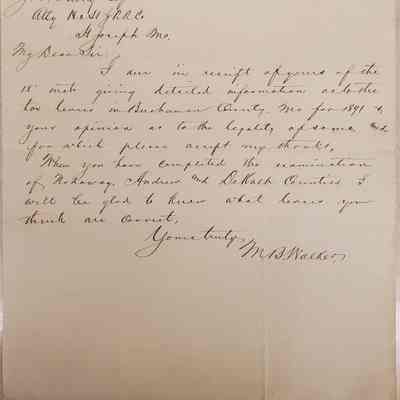 Atty H & St J R.R. Co
St Joseph Mo.
My Dear Sir;
I am in receipt of yours of the
15 inst giving detailed information as to the
tax levies in Buchanan County. Mo for 1891 &
your opinion as to the legality of same and
for which please accept my thanks.
When you have completed the examination
of Nodaway, Andrew and DeKalb Counties I
will be glad to know what levies you
think are correct.
Yours truly,
M. B. Walker,